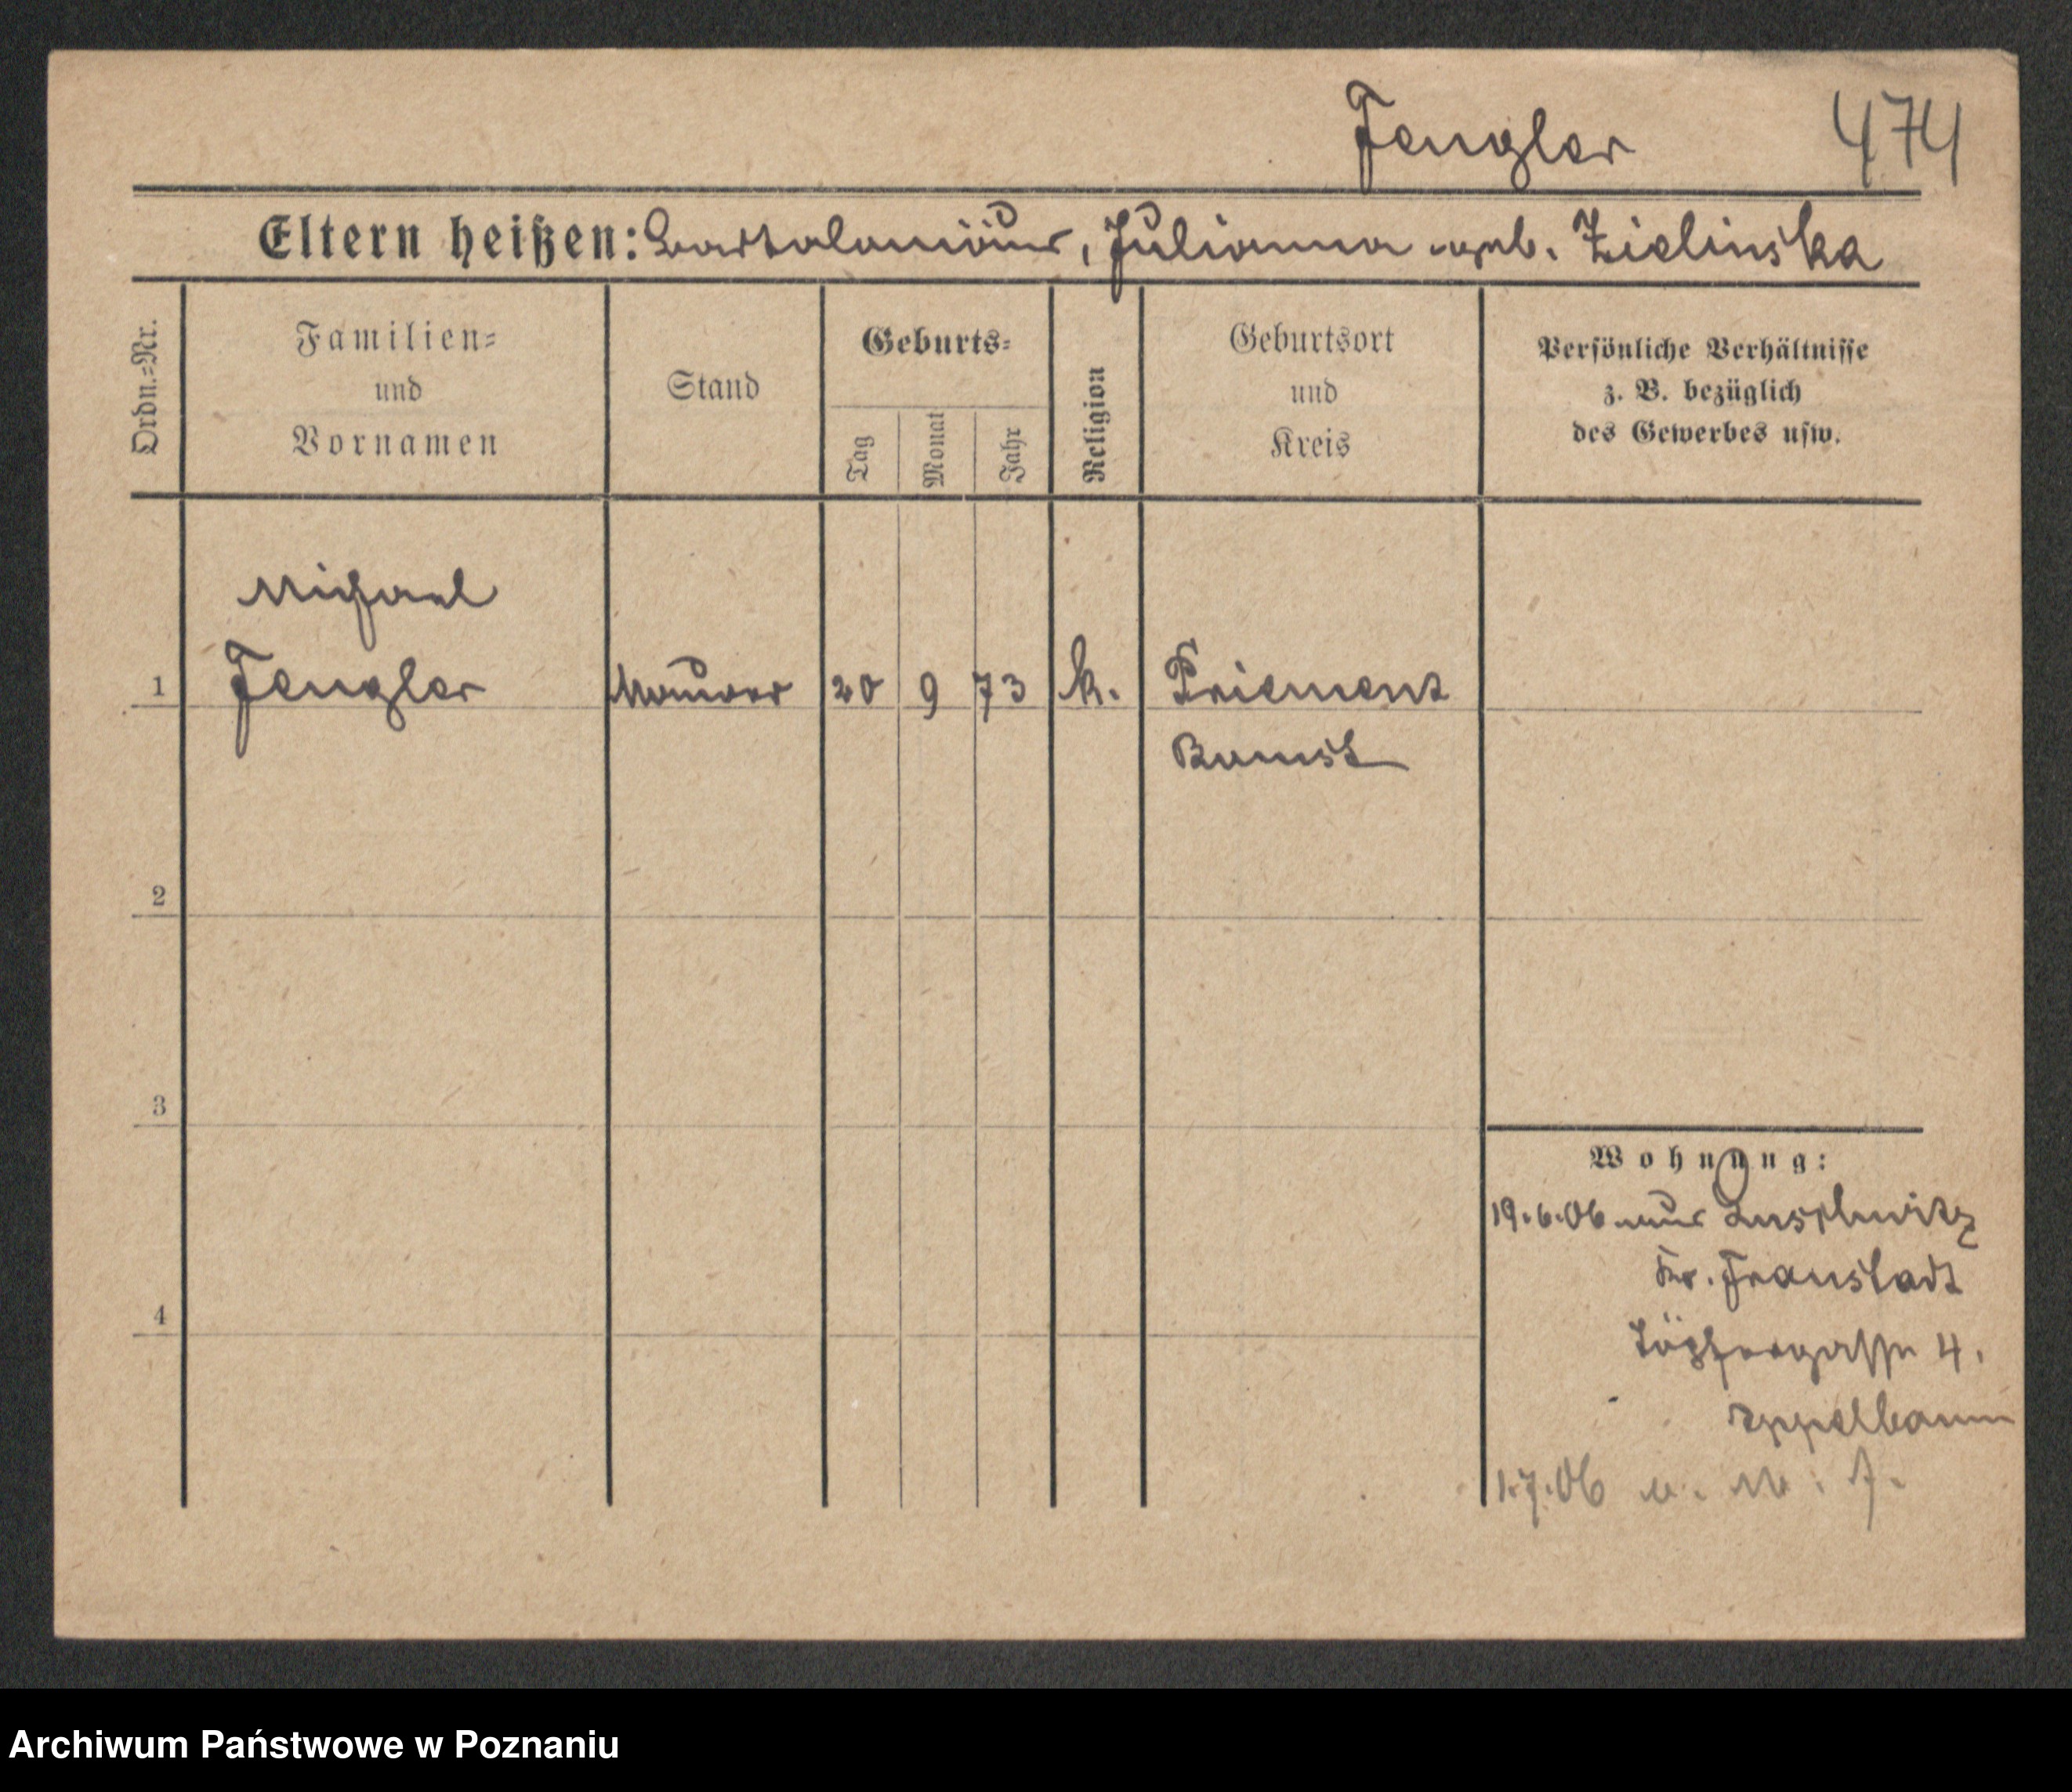 Fengler 474
Eltern heißen: Bartolomäus, Julianna geb. Zielinska
Ordn.=Nr.
Familien=
und
Vornamen
Stand
Geburts=
Tag
Monat
Jahr
Religion
Geburtsort
und
Kreis
Persönliche Verhältnisse
z. B. bezüglich
des Gewerbes usw.
Michael
1 Fengler Maurer 20 9 73 k. Priement
Bomst
2
3
4
Wohnung:
19.6.06 aus Luschwitz
Kr. Fraustadt
Töpfergasse 4.
Appelbaum
1.7.06
Archiwum Państwowe w Poznaniu